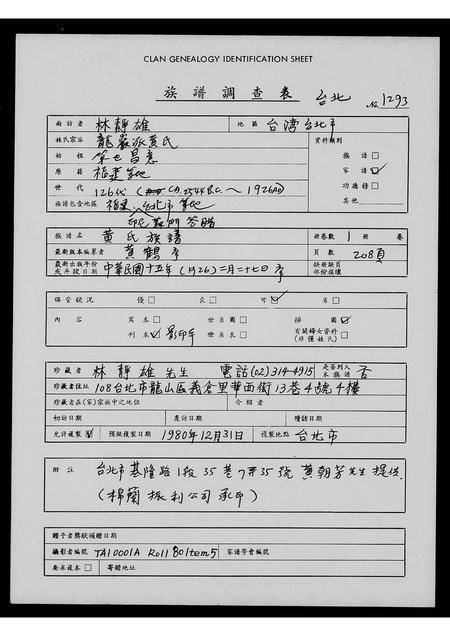 CLAN GENEALOGY IDENTIFICATION SHEET
族譜調查表 台北 No 1293
面訪者 林靜雄 地區 台湾台北市
姓氏宗派 龍巖派黃氏 資料類別
始祖 第七昌意 族譜
原籍 福建等地 家譜 ✓
世代 126代 (CA.2544B.C.～1926AD) 功德榜
族譜包含地區 福建、台北市等地 其他
印尼 蘇門答臘
族譜名 黃氏族譜 冊卷數 1 冊 卷
最新版本編纂者 黃鶴 頁數 208頁
最新出版年份或斗段日期 中華民國十五年(1926)二月二十七日 缺冊缺頁部份損壞
保管狀況 優 良 可 ✓ 差
內容 寫本 世系圖 插圖 ✓
刊本 ✓ 影印年 世系表 有關婦女資料(非僅姓氏)
珍藏者 林靜雄先生 電話(02)314-4915 是否列入本族譜 否
珍藏者住址 108台北市龍山區義倉里華西街13巷4號4樓
珍藏者在(宗)家族中之地位 介紹者
初訪日期 度訪日期 續訪日期
允許複製 ✓ 預擬複製日期 1980年12月31日 複製地點 台北市
附註 台北市基隆路1段35巷7弄35號黃朝芳先生提供
(棉蘭振利公司承印)
贈予者獎狀頒贈日期
攝影者編號 TA10001A Roll 80 Item 5 家譜學會編號
要求複本 寄贈地址